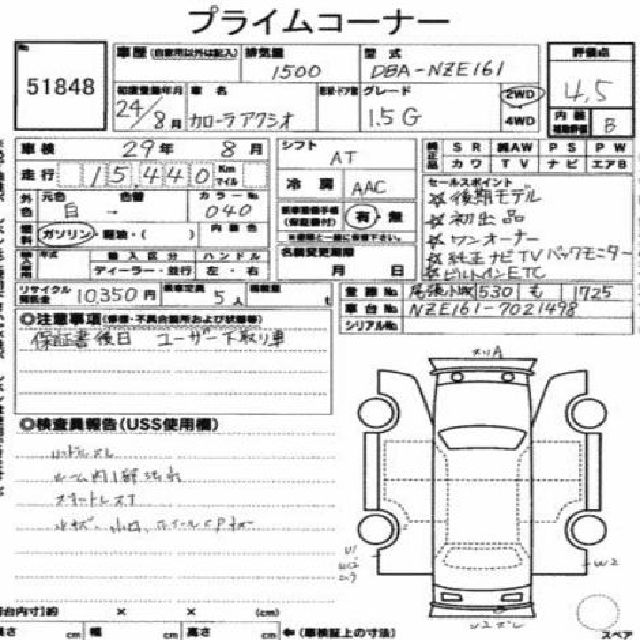 プライムコーナー
No 51848
車歴 (自家用以外は記入) 排気量 1500 型式 DBA-NZE161 評価点 4.5
初度登録年月 24/8月 車名 カローラアクシオ グレード 1.5G 2WD 4WD 内装 補助評価 B
車検 29年 8月 シフト AT
純正品 SR 純AW PS PW
カワ TV ナビ エアB
走行 15,440 Km マイル 冷房 AAC
セールスポイント
☆後期モデル
☆初出品
☆ワンオーナー
☆純正ナビTVバックモニター
☆ビルトインETC
外色 元色 白 → 色替 カラーNo. 040
新車整備手帳 (保証書付) 有・無
燃料 ガソリン・軽油・( ) 内装色
輸入区分 ハンドル
ディーラー・並行 左・右
名義変更期限 月 日
リサイクル預託金 10,350円 乗車定員 5人 積載量 t
登録No. 尾張小牧 530 も 1725
車台No. NZE161-7021498
シリアルNo.
◎注意事項(修復・不具合箇所および状態等)
保証書後日 ユーザー下取り車
◎検査員報告(USS使用欄)
ハンドルスレ
メリA
U1
W2
W2
荷台内寸約 × × (cm)
長さ cm 幅 cm 高さ cm ←(車検証上の寸法)
スペア